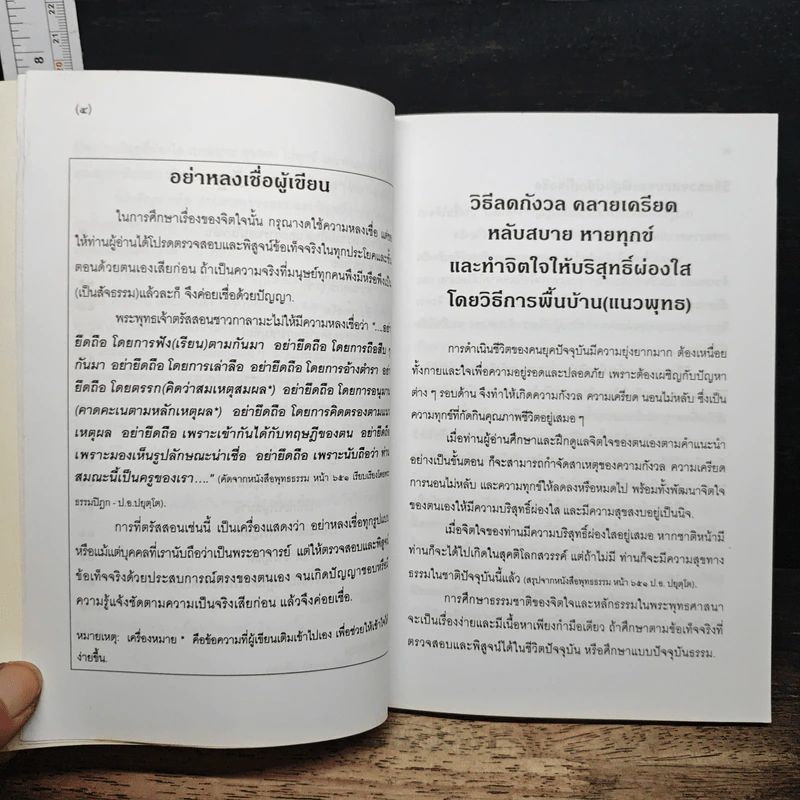 8
22
21
20
(๔)
อย่าหลงเชื่อผู้เขียน
ในการศึกษาเรื่องของจิตใจนั้น กรุณางดใช้ความหลงเชื่อ
ให้ท่านผู้อ่านได้โปรดตรวจสอบและพิสูจน์ข้อเท็จจริงในทุกประโยคและ
ตอนด้วยตนเองเสียก่อน ถ้าเป็นความจริงที่มนุษย์ทุกคนพึงมีหรือพึงเป็น
(เป็นสัจธรรม)แล้วละก็ จึงค่อยเชื่อด้วยปัญญา.
พระพุทธเจ้าตรัสสอนชาวกาลามะไม่ให้มีความหลงเชื่อว่า "....อย่า
ยึดถือ โดยการฟัง(เรียน)ตามกันมา อย่ายึดถือ โดยการถือสืบ ๆ
กันมา อย่ายึดถือ โดยการเล่าลือ อย่ายึดถือ โดยการอ้างตำรา อย่า
ยึดถือ โดยตรรก(คิดว่าสมเหตุสมผล*) อย่ายึดถือ โดยการอนุมาน
(คาดคะเนตามหลักเหตุผล*) อย่ายึดถือ โดยการคิดตรองตามแนว
เหตุผล อย่ายึดถือ เพราะเข้ากันได้กับทฤษฎีของตน อย่ายึดถือ
เพราะมองเห็นรูปลักษณะน่าเชื่อ อย่ายึดถือ เพราะนับถือว่า ท่าน
สมณะนี้เป็นครูของเรา...." (คัดจากหนังสือพุทธธรรม หน้า ๖๕๑ เรียบเรียงโดยพระ
ธรรมปิฎก - ป.อ.ปยุตฺโต).
การที่ตรัสสอนเช่นนี้ เป็นเครื่องแสดงว่า อย่าหลงเชื่อทุกรูปแบบ
หรือแม้แต่บุคคลที่เรานับถือว่าเป็นพระอาจารย์ แต่ให้ตรวจสอบและพิสูจน์
ข้อเท็จจริงด้วยประสบการณ์ตรงของตนเอง จนเกิดปัญญาชอบหรือมี
ความรู้แจ้งชัดตามความเป็นจริงเสียก่อน แล้วจึงค่อยเชื่อ.
หมายเหตุ: เครื่องหมาย * คือข้อความที่ผู้เขียนเติมเข้าไปเอง เพื่อช่วยให้เข้าใจได้
ง่ายขึ้น.
วิธีลดกังวล คลายเครียด
หลับสบาย หายทุกข์
และทำจิตใจให้บริสุทธิ์ผ่องใส
โดยวิธีการพื้นบ้าน(แนวพุทธ)
การดำเนินชีวิตของคนยุคปัจจุบันมีความยุ่งยากมาก ต้องเหนื่อย
ทั้งกายและใจเพื่อความอยู่รอดและปลอดภัย เพราะต้องเผชิญกับปัญหา
ต่าง ๆ รอบด้าน จึงทำให้เกิดความกังวล ความเครียด นอนไม่หลับ ซึ่งเป็น
ความทุกข์ที่กัดกินคุณภาพชีวิตอยู่เสมอ ๆ
เมื่อท่านผู้อ่านศึกษาและฝึกดูแลจิตใจของตนเองตามคำแนะนำ
อย่างเป็นขั้นตอน ก็จะสามารถกำจัดสาเหตุของความกังวล ความเครียด
การนอนไม่หลับ และความทุกข์ให้ลดลงหรือหมดไป พร้อมทั้งพัฒนาจิตใจ
ของตนเองให้มีความบริสุทธิ์ผ่องใส และมีความสุขสงบอยู่เป็นนิจ.
เมื่อจิตใจของท่านมีความบริสุทธิ์ผ่องใสอยู่เสมอ หากชาติหน้ามี
ท่านก็จะได้ไปเกิดในสุคติโลกสวรรค์ แต่ถ้าไม่มี ท่านก็จะมีความสุขทาง
ธรรมในชาติปัจจุบันนี้แล้ว (สรุปจากหนังสือพุทธธรรม หน้า ๖๕๑ ป.อ. ปยุตฺโต).
การศึกษาธรรมชาติของจิตใจและหลักธรรมในพระพุทธศาสนา
จะเป็นเรื่องง่ายและมีเนื้อหาเพียงกำมือเดียว ถ้าศึกษาตามข้อเท็จจริงที่
ตรวจสอบและพิสูจน์ได้ในชีวิตปัจจุบัน หรือศึกษาแบบปัจจุบันธรรม.